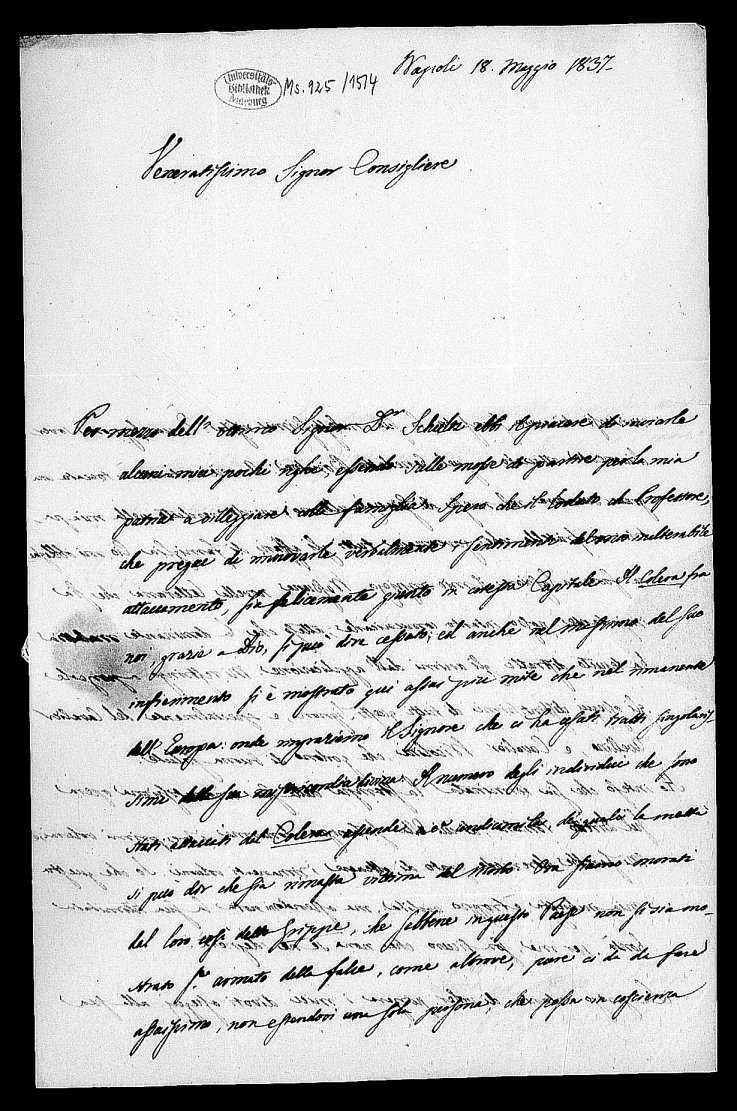 Napoli 18. Maggio 1837.
Universitäts-
Bibliothek
Marburg
Ms. 925/1514
Veneratissimo Signor Consigliere
Per mezzo dell' ottimo Signor D.r Schultz ebbi il piacere di inviarle
alcuni miei pochi righi, essendo sulle mosse di partire per la mia
patria a villeggiare colla famiglia. Spero che il lodato Sig. Professore,
che pregai di rinnovarle verbalmente i sentimenti del mio inalterabile
attaccamento, sia felicemente giunto in cotesta Capitale. Il Colera fra
noi, grazie a Dio, si può dire cessato; ed anche nel massimo del suo
infierimento si è mostrato qui assai più mite che nel rimanente
dell' Europa: onde ringraziamo il Signore che ci ha usati tratti singolaris-
simi della sua misericordia divina. Il numero degli individui che sono
stati attaccati dal Colera ascende a di quali la metà
si può dir che sia rimasta vittima del morbo. Ora siamo onorati
del loro così detto Grippe, che sebbene in questo Paese non si sia mo-
strato sì armato della falce, come altrove, pure ci dà da fare
assaissimo, non essendovi una sola persona, che possa in coscienza